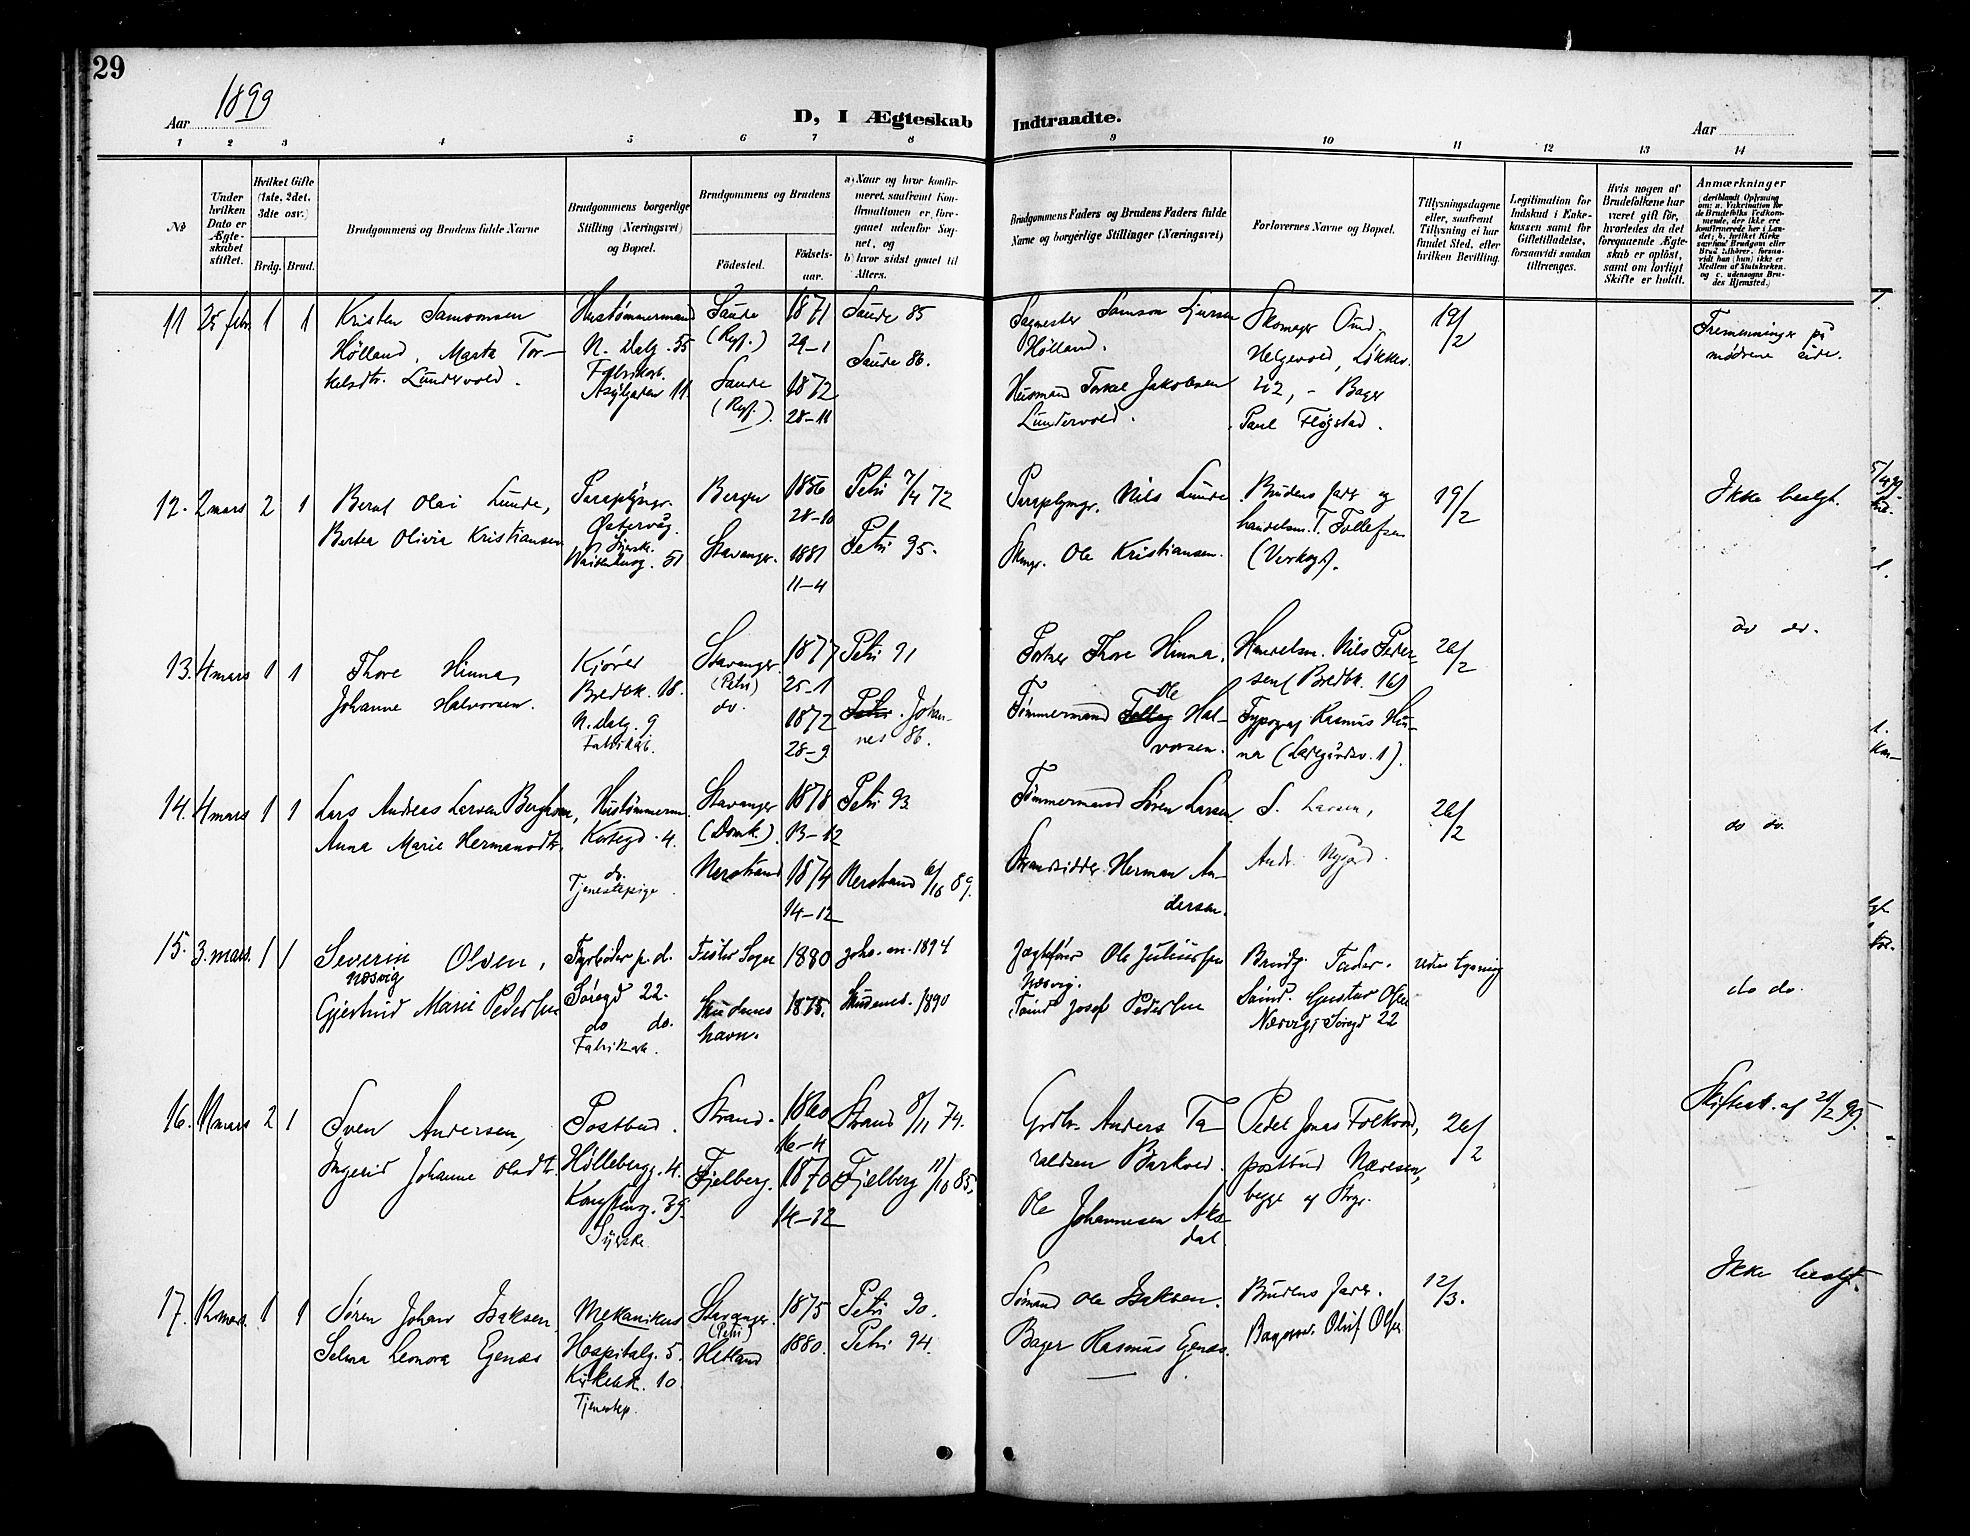 29
Aar 1899
D, I Ægteskab Indtraadte.
Aar
1 2 3 4 5 6 7 8 9 10 11 12 13 14
№
Under hvilken Dato er Ægteskabet stiftet.
Hvilket Gifte (1ste, 2det, 3die osv.)
Brdg. Brud.
Brudgommens og Brudens fulde Navne
Brudgommens borgerlige Stilling (Næringsvei) og Bopæl.
Brudgommens og Brudens
Fødested.
Fødselsaar.
a) Naar og hvor konfirmeret, saafremt Konfirmationen er foregaaet udenfor Sognet, og
b) hvor sidst gaaet til Alters.
Brudgommens Faders og Brudens Faders fulde Navne og borgerlige Stillinger (Næringsvei)
Forlovernes Navne og Bopæl.
Tillysningsdagene eller, saafremt Tillysning ei har fundet Sted, efter hvilken Bevilling.
Legitimation for Indskud i Enkekassen samt for Giftetilladelse, forsaavidt saadan tiltrænges.
Hvis nogen af Brudefolkene har været gift før, hvorledes da det foregaaende Ægteskab er opløst, samt om lovligt Skifte er holdt.
Anmærkninger
11 25 febr. 1 1
Kristen Samsonsen
Hølland, Marta Tor-
kelsdtr. Lundevold.
Hustømmermand
N. Dalg. 55
Fabrikarb.
Asylgaden 11.
Saude
(Ryf.)
Saude
(Ryf.)
1871
29-1
1872
28-11
Saude 85
Saude 86.
Sagmester Samson
Hølland.
Husmand Torkel Jakobsen
Lundevold.
Skomager
Helgevold, Løkkev.
Bager
Paul Fløgstad.
19/2
Fremmninger på
mødrene side.
12. 2 mars 2 1
Bernt Olai Lunde,
Berta Olivia Kristiansen
Paraplymgr.
Østervåg.
Syersk.
Waisenhusg. 51
Bergen
Stavanger.
1856
28-10
1881
11-4
Petri 7/4 72
Petri 95.
Paraplymgr. Nils Lunde
Ole Kristiansen.
Brudens far og
handelsm. T. Tollefsen
(Verksgt).
19/2
Ikke beslgt.
13. 4 mars 1 1
Thore Hinna,
Johanne Halvorsen.
Kjører
Bredbk. 18.
N. Dalg. 9
Fabrikarb.
Stavanger
(Petri)
do.
1877
25-1
1872
28-9
Petri 91
Petri. Johan-
nes 86.
Thore Hinna.
Tømmermand Ole Hal-
vorsen.
Handelsm. Nils Peder-
sen (Bredbk. 16)
Typograf Rasmus Hin-
na (Ladegårdsv. 1).
26/2
do do.
14. 4 mars 1 1
Lars Andreas Larsen
Anna Marie Hermansdtr.
Hustømmerm.
4.
do.
Tjenestepige
Stavanger
(Domk.)
Nerstrand
1878
13-12
1874
14-12
Petri 93
Nerstrand 6/10 89.
Tømmermand Søren Larsen
Strandsidder Herman An-
dersen.
S. Larsen,
Andr. Nygård.
26/2
do do.
15. 3. mars. 1 1
Severin Olsen,
Næsvig
Gjertrud Marie Pedersen
Fyrbøder p. d.
Søregd 22.
do do.
Fabrikarb.
Fister Sogn
Skudenes
havn.
1880
1875.
Joha.m. 1894
Skudenes. 1890
Jægtefører Ole Juliussen
Næsvig.
Josef Pedersen
Brudg. Fader.
Gustav Olsen
Næsvig, Søregd 22
uden lysning
do do.
16. 11 mars 2 1
Sven Andersen,
Ingerid Johanne Olsdtr.
Postbud.
Hølleberg. 4.
Kongsteing. 39.
Syerske
Strand.
Fjelberg.
1860
16-4
1870
14-12
Strand 8/11 74.
Fjelberg 11/10 85.
Grdbr. Anders Ta-
raldsen Barkved.
Ole Johannesen Aks-
dal.
Pedel Jonas Folkvord,
postbud Nærlesen,
begge af Stvgr.
26/2
Skifteatt. af 21/2 99.
17. 12 mars. 1 1
Søren Johan Isaksen.
Selma Leonora Egenæs
Mekanikus
Hospitalg. 5.
Kirkebk. 10.
Tjenestep.
Stavanger.
(Petri)
Hetland
1875
1880.
Petri 90.
Petri 94.
Sømand Ole Isaksen.
Bager Rasmus Egenæs.
Brudens far.
Oluf Olsen
12/3.
Ikke beslgt.